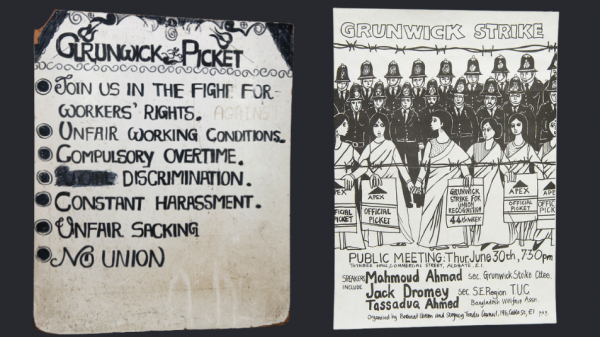 GRUNWICK PICKET
JOIN US IN THE FIGHT FOR
WORKERS' RIGHTS. AGAINST
UNFAIR WORKING CONDITIONS.
COMPULSORY OVERTIME.
DISCRIMINATION.
CONSTANT HARASSMENT.
UNFAIR SACKING
NO UNION
GRUNWICK STRIKE
OFFICIAL
PICKET
APEX
OFFICIAL
PICKET
GRUNWICK
STRIKE FOR
UNION
RECOGNITION
44th WEEK
APEX
OFFICIAL
PICKET
APEX
OFFICIAL
PICK
PUBLIC MEETING: Thur. June 30th, 7.30pm
TOYNBEE HALL, COMMERCIAL STREET, ALDGATE E.1.
SPEAKERS Mahmoud Ahmad sec. Grunwick Strike Cttee.
INCLUDE Jack Dromey sec. S.E. Region T.U.C
Tassaduq Ahmed Bangladesh Welfare Assn.
Organised by Bethnal Green and Stepney Trades Council, Cable St, E1